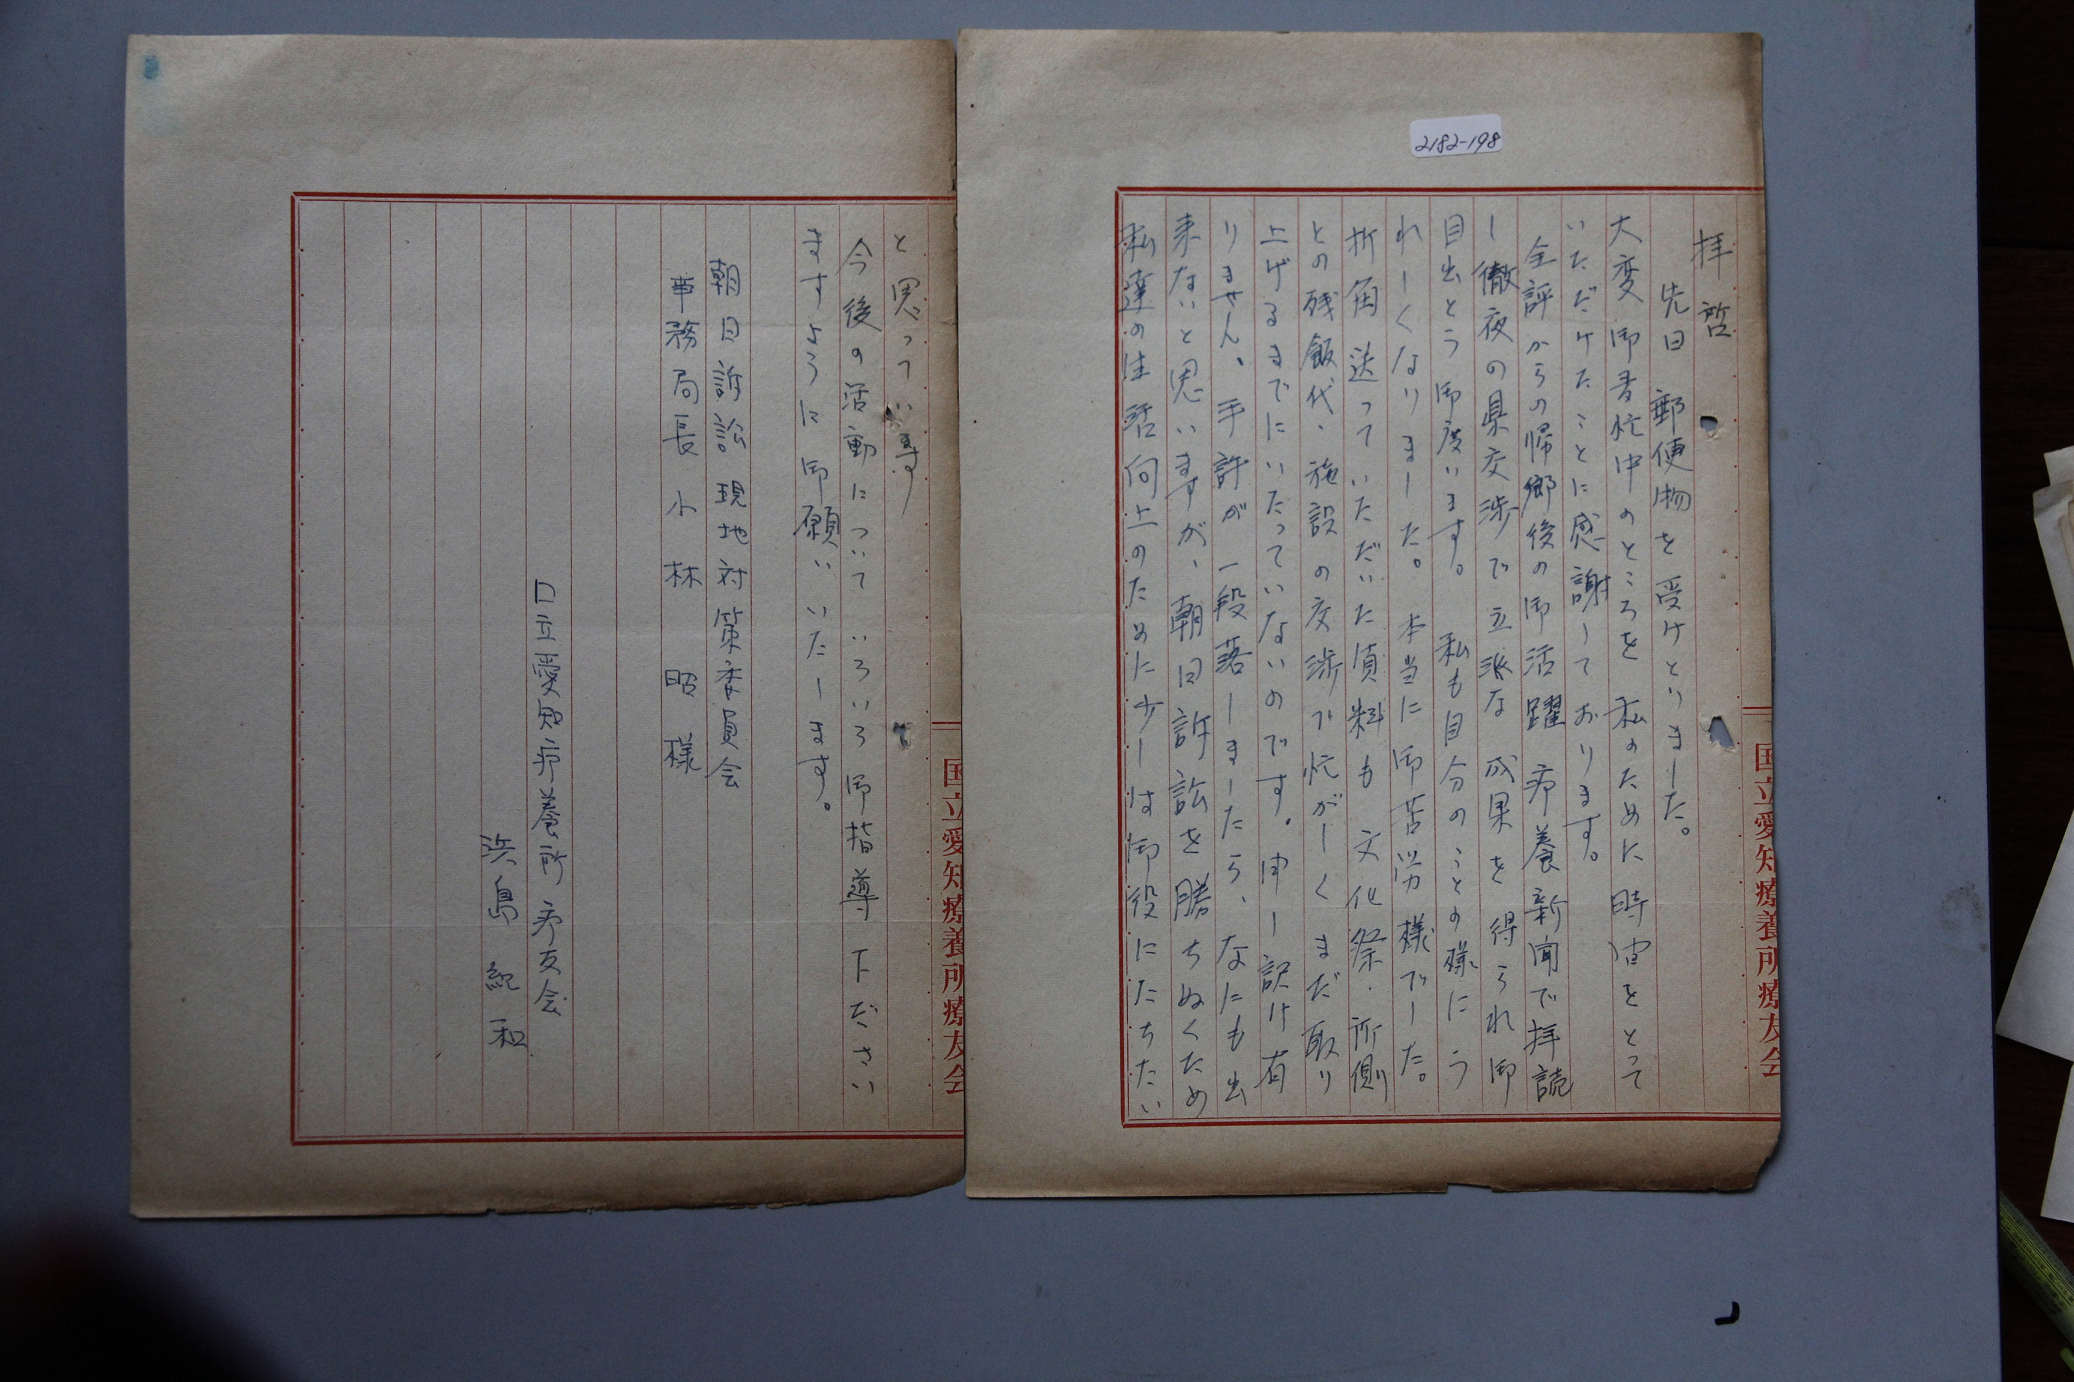 2182-198
拝啓
先日 郵便物を受けとりました。
大変 御多忙中のところを 私のために 時間をとって
いただけたことに感謝しております。
全評からの帰郷後の御活躍 療養新聞で拝読
し徹夜の県交渉で立派な 成果を 得られ御
目出とう御座います。 私も自分のことの様にう
れしくなりました。 本当に御苦労様でした。
折角 送っていただいた資料も 文化祭・所側
との残飯代、施設の交渉で忙がしくまだ取り
上げるまでにいたっていないのです。申し訳け有
りません。手許が一段落しましたら、なにも出
来ないと思いますが、朝日訴訟を勝ちぬくため
私達の生活向上のためた少しは御役にたちたい
国立愛知療養所療友会
と思っています
今後の活動について いろいろ御指導下ださい
ますように御願いいたします。
朝日訴訟現地対策委員会
事務局長 小林 昭 様
口立愛知療養所療友会
浜島 紀和
国立愛知療養所療友会